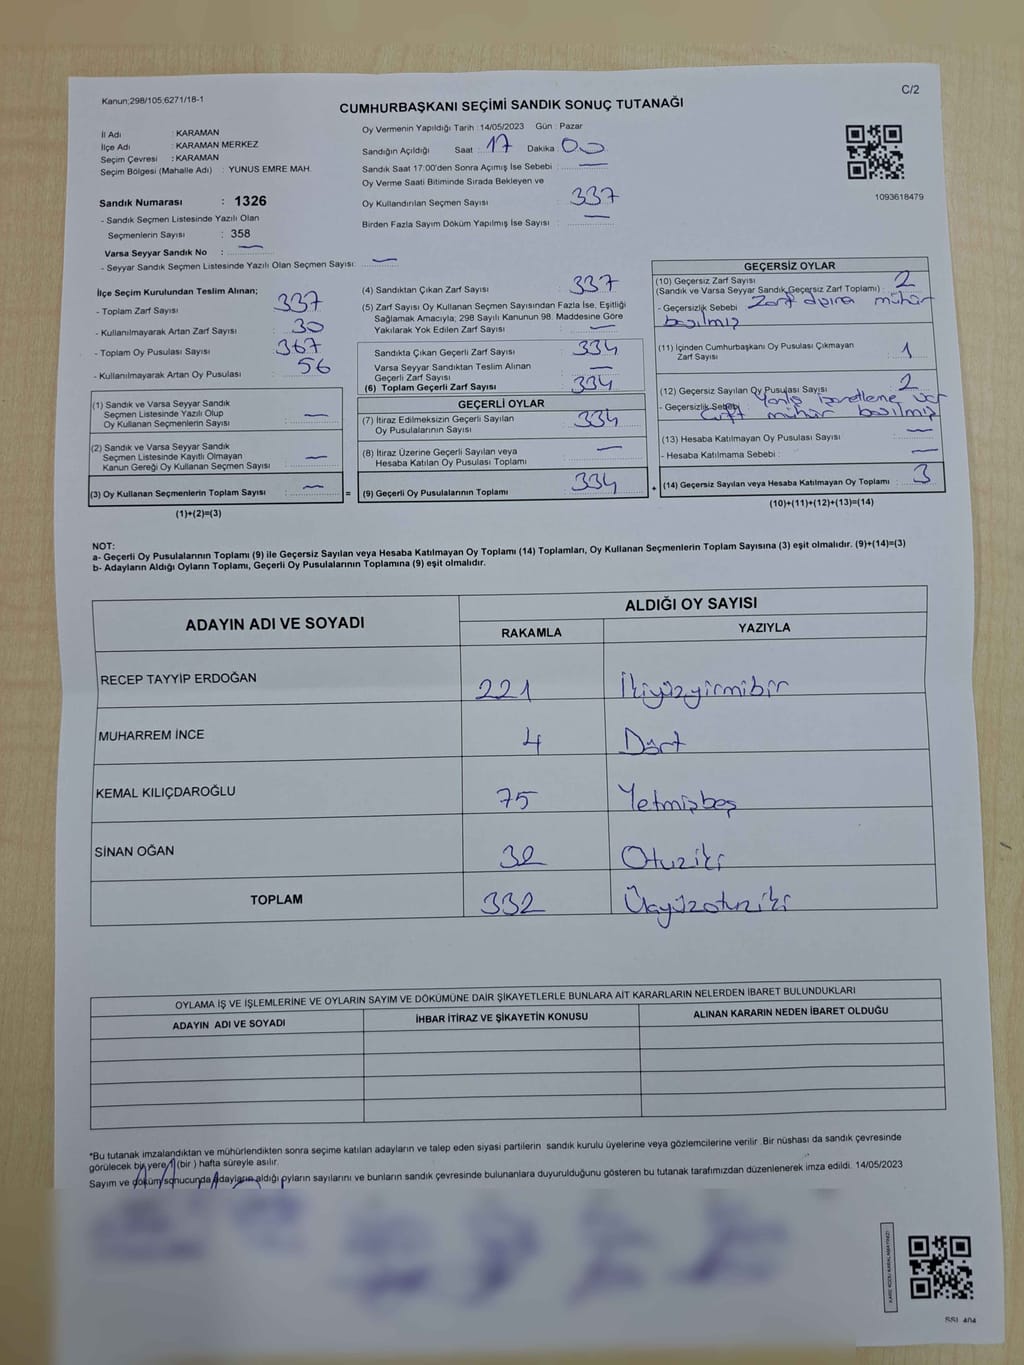 Kanun;298/105;6271/18-1
C/2
CUMHURBAŞKANI SEÇİMİ SANDIK SONUÇ TUTANAĞI
İl Adı : KARAMAN
İlçe Adı : KARAMAN MERKEZ
Seçim Çevresi : KARAMAN
Seçim Bölgesi (Mahalle Adı) : YUNUS EMRE MAH.
Sandık Numarası : 1326
- Sandık Seçmen Listesinde Yazılı Olan
Seçmenlerin Sayısı : 358
Varsa Seyyar Sandık No : —
- Seyyar Sandık Seçmen Listesinde Yazılı Olan Seçmen Sayısı: —
Oy Vermenin Yapıldığı Tarih : 14/05/2023 Gün : Pazar
Sandığın Açıldığı Saat : 17 Dakika : 00
Sandık Saat 17:00'den Sonra Açımış İse Sebebi : —
Oy Verme Saati Bitiminde Sırada Bekleyen ve
Oy Kullandırılan Seçmen Sayısı : 337
Birden Fazla Sayım Döküm Yapılmış İse Sayısı : —
1093618479
İlçe Seçim Kurulundan Teslim Alınan;
- Toplam Zarf Sayısı : 337
- Kullanılmayarak Artan Zarf Sayısı : 30
- Toplam Oy Pusulası Sayısı : 367
- Kullanılmayarak Artan Oy Pusulası : 56
(1) Sandık ve Varsa Seyyar Sandık
Seçmen Listesinde Yazılı Olup
Oy Kullanan Seçmenlerin Sayısı : —
(2) Sandık ve Varsa Seyyar Sandık
Seçmen Listesinde Kayıtlı Olmayan
Kanun Gereği Oy Kullanan Seçmen Sayısı : —
(3) Oy Kullanan Seçmenlerin Toplam Sayısı : — =
(1)+(2)=(3)
(4) Sandıktan Çıkan Zarf Sayısı : 337
(5) Zarf Sayısı Oy Kullanan Seçmen Sayısından Fazla İse, Eşitliği
Sağlamak Amacıyla; 298 Sayılı Kanunun 98. Maddesine Göre
Yakılarak Yok Edilen Zarf Sayısı : —
Sandıkta Çıkan Geçerli Zarf Sayısı : 334
Varsa Seyyar Sandıktan Teslim Alınan
Geçerli Zarf Sayısı : —
(6) Toplam Geçerli Zarf Sayısı : 334
GEÇERLİ OYLAR
(7) İtiraz Edilmeksizin Geçerli Sayılan
Oy Pusulalarının Sayısı : 334
(8) İtiraz Üzerine Geçerli Sayılan veya
Hesaba Katılan Oy Pusulası Toplamı : —
(9) Geçerli Oy Pusulalarının Toplamı : 334 +
GEÇERSİZ OYLAR
(10) Geçersiz Zarf Sayısı
(Sandık ve Varsa Seyyar Sandık Geçersiz Zarf Toplamı) : 2
- Geçersizlik Sebebi : Zarf dışına mühür
basılmış
(11) İçinden Cumhurbaşkanı Oy Pusulası Çıkmayan
Zarf Sayısı : 1
(12) Geçersiz Sayılan Oy Pusulası Sayısı : 2
- Geçersizlik Sebebi : Yanlış işaretleme
çift mühür basılmış
(13) Hesaba Katılmayan Oy Pusulası Sayısı : —
- Hesaba Katılmama Sebebi : —
(14) Geçersiz Sayılan veya Hesaba Katılmayan Oy Toplamı : 3
(10)+(11)+(12)+(13)=(14)
NOT:
a- Geçerli Oy Pusulalarının Toplamı (9) ile Geçersiz Sayılan veya Hesaba Katılmayan Oy Toplamı (14) Toplamları, Oy Kullanan Seçmenlerin Toplam Sayısına (3) eşit olmalıdır. (9)+(14)=(3)
b- Adayların Aldığı Oyların Toplamı, Geçerli Oy Pusulalarının Toplamına (9) eşit olmalıdır.
ADAYIN ADI VE SOYADI ALDIĞI OY SAYISI
RAKAMLA YAZIYLA
RECEP TAYYİP ERDOĞAN 221 İkiyüzyirmibir
MUHARREM İNCE 4 Dört
KEMAL KILIÇDAROĞLU 75 Yetmişbeş
SİNAN OĞAN 32 Otuziki
TOPLAM 332 Üçyüzotuziki
OYLAMA İŞ VE İŞLEMLERİNE VE OYLARIN SAYIM VE DÖKÜMÜNE DAİR ŞİKAYETLERLE BUNLARA AİT KARARLARIN NELERDEN İBARET BULUNDUKLARI
ADAYIN ADI VE SOYADI İHBAR İTİRAZ VE ŞİKAYETİN KONUSU ALINAN KARARIN NEDEN İBARET OLDUĞU
*Bu tutanak imzalandıktan ve mühürlendikten sonra seçime katılan adayların ve talep eden siyasi partilerin sandık kurulu üyelerine veya gözlemcilerine verilir .Bir nüshası da sandık çevresinde
görülecek bir yere 1 (bir ) hafta süreyle asılır.
Sayım ve döküm sonucunda adayların aldığı oyların sayılarını ve bunların sandık çevresinde bulunanlara duyurulduğunu gösteren bu tutanak tarafımızdan düzenlenerek imza edildi. 14/05/2023
KARE KODU KARALAMAYINIZ!